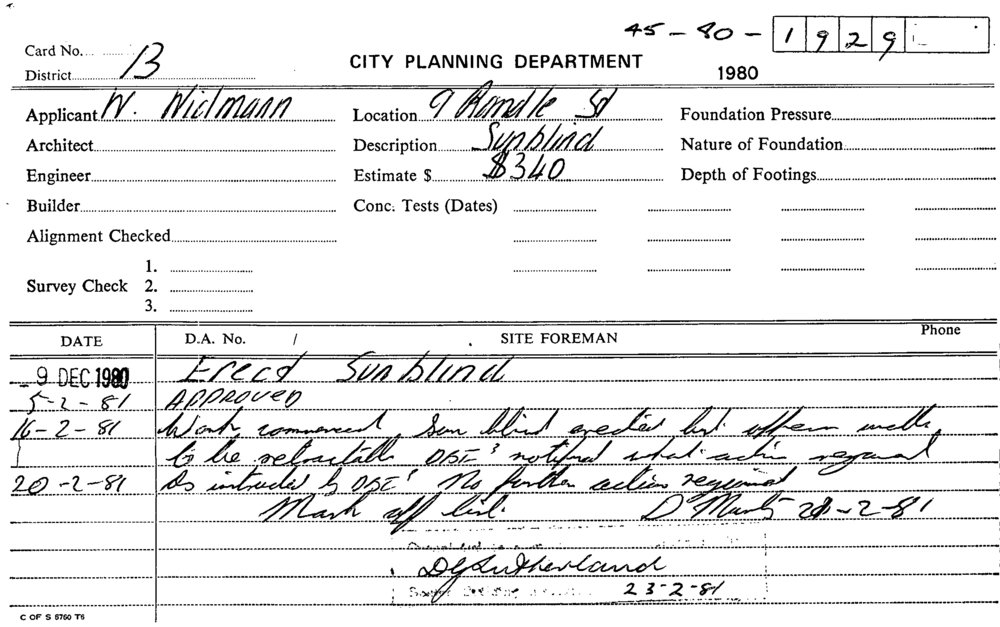 45-80-1929
Card No.
District B
CITY PLANNING DEPARTMENT
1980
Applicant W. Widmann
Location 9 Rondle St
Foundation Pressure
Architect
Description Sunblind
Nature of Foundation
Engineer
Estimate $ $340
Depth of Footings
Builder
Conc. Tests (Dates)
Alignment Checked
1.
Survey Check 2.
3.
DATE D.A. No. / SITE FOREMAN Phone
9 DEC 1980 Erect Sunblind
5-2-81 APPROVED
16-2-81 Work commenced Sun blind erected but
to be retractable notified what action required
20-2-81 As instructed by No further action required
Mark off list. 20-2-81
DG Sutherland
23-2-81
C OF S 5760 T6